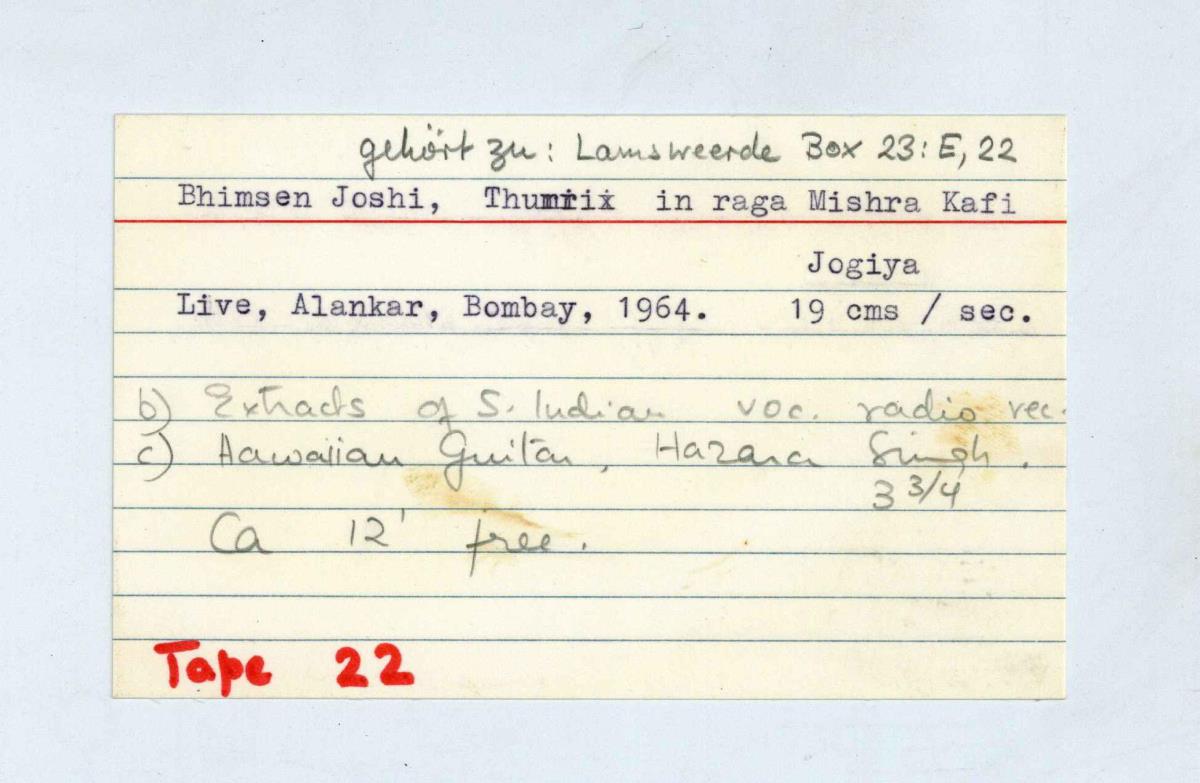 gehört zu: Lamsweerde Box 23: E, 22
Bhimsen Joshi, Thumrix in raga Mishra Kafi
Jogiya
Live, Alankar, Bombay, 1964. 19 cms / sec.
b) Extracts of S. Indian voc. radio rec.
c) Hawaiian Guitar, Hazara Singh.
3 3/4
Ca 12' free.
Tape 22